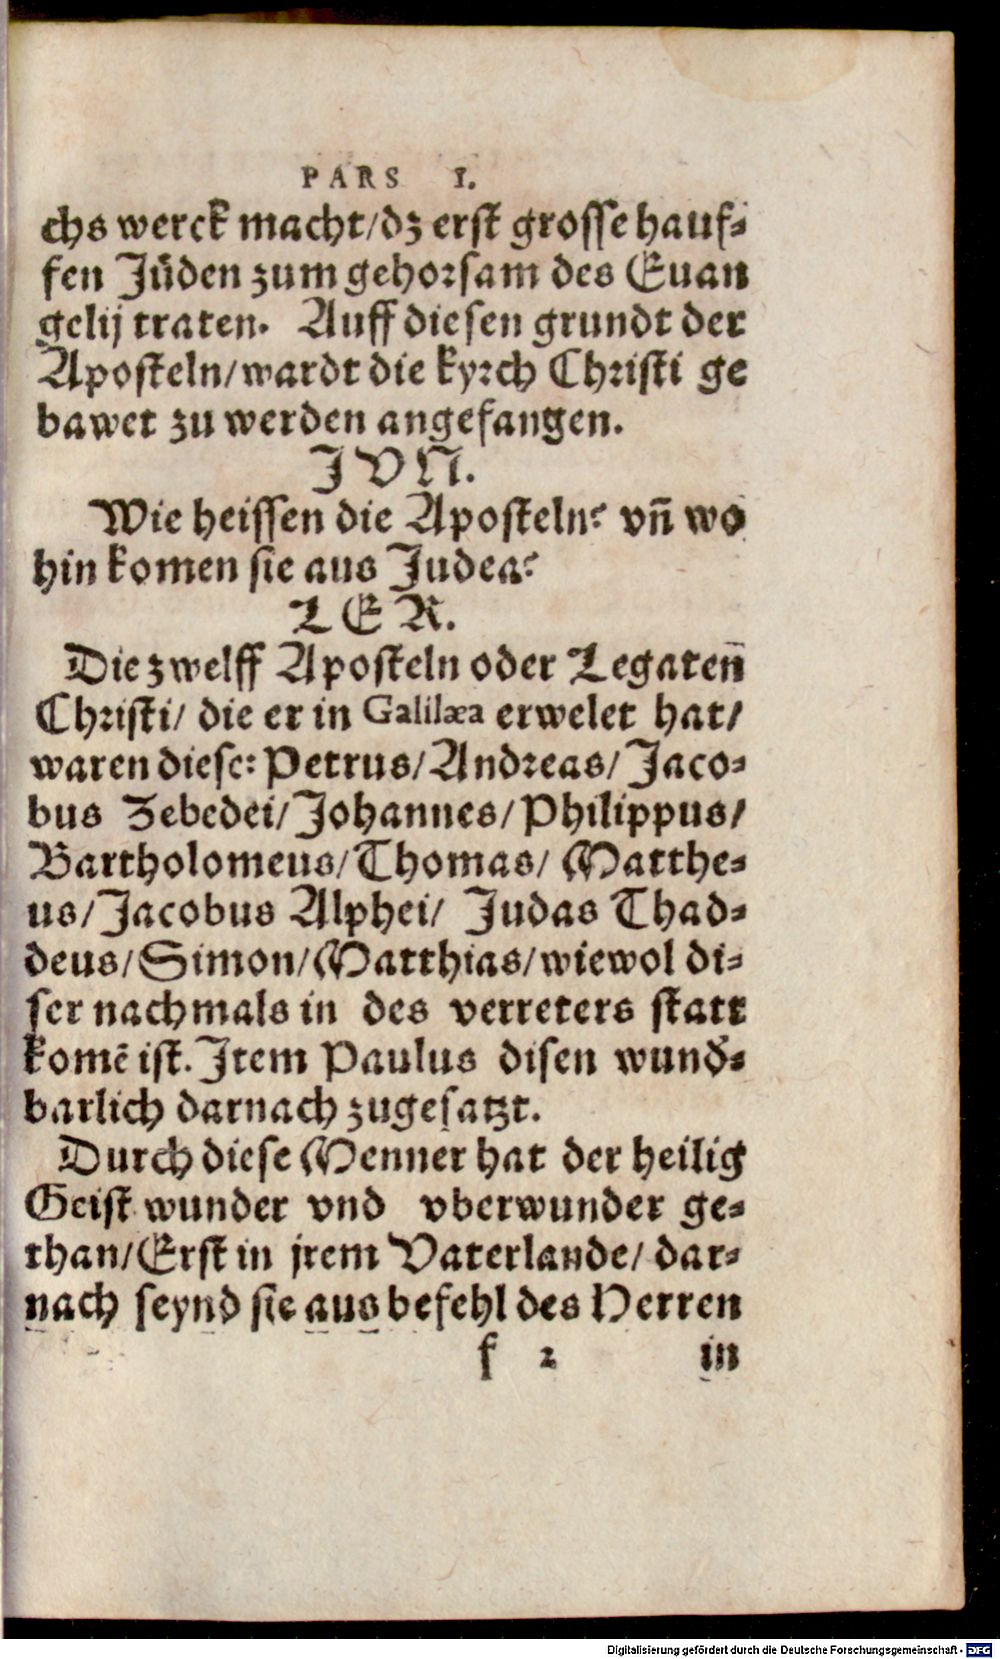 PARS I.
chs werck macht/dz erst grosse hauf-
fen Jüden zum gehorsam des Euan
gelij traten. Auff diesen grundt der
Aposteln/wardt die kyrch Christi ge
bawet zu werden angefangen.
JVN.
Wie heissen die Aposteln? vñ wo
hin komen sie aus Judea?
LER.
Die zwelff Aposteln oder Legaten̄
Christi/ die er in Galilæa erwelet hat/
waren diese: Petrus/Andreas/Jaco-
bus Zebedei/Johannes/Philippus/
Bartholomeus/Thomas/ Matthe-
us/Jacobus Alphei/ Judas Thad-
deus/Simon/Matthias/wiewol di-
ser nachmals in des verreters statt
komē ist. Item Paulus disen wund̕-
barlich darnach zugesatzt.
Durch diese Menner hat der heilig
Geist wunder vnd vberwunder ge-
than/Erst in jrem Vaterlande/ dar-
nach seynd sie aus befehl des Herren
f 2 in
Digitalisierung gefördert durch die Deutsche Forschungsgemeinschaft - DFG